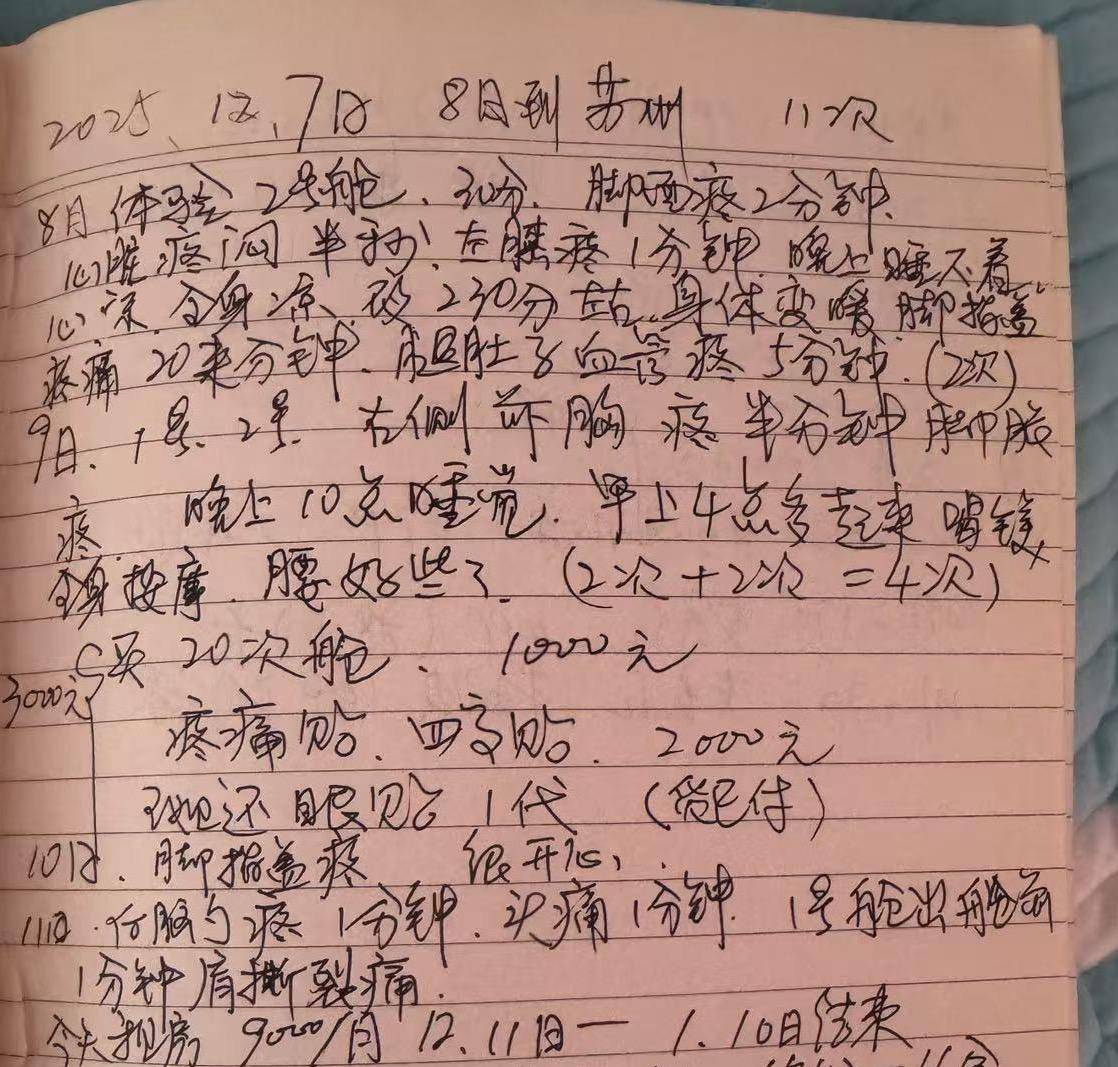 2025、12、7日 8日到苏州 11次
8日体验2号舱、30分、脚面疼2分钟、
心脏疼闷半秒、左膝疼1分钟、晚上睡不着、
心凉、全身凉、夜230分左右、身体变暖、脚指盖
疼痛20来分钟、腿肚子血管疼5分钟、(2次)
9日、1号、2号、右侧 胸疼半分钟 脚
疼、 晚上10点睡觉、早上4点多起来喝镁
全身按摩、腰好些了、(2次+2次=4次)
买20次舱、 1000元
3000元
疼痛贴、四高贴、2000元
还眼贴1代 (货已付)
10日、脚指盖疼 很开心、
11日、后脑勺疼1分钟、头痛1分钟、1号舱出舱前
1分钟肩撕裂痛.
今天租房 9000/月 12、11日一 1、10日结束